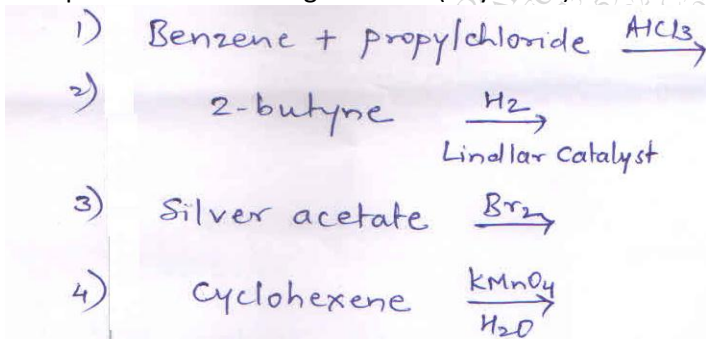 1) Benzene + propylchloride AlCl3
2) 2-butyne H2
Lindlar catalyst
3) Silver acetate Br2
4) Cyclohexene KMnO4
H2O